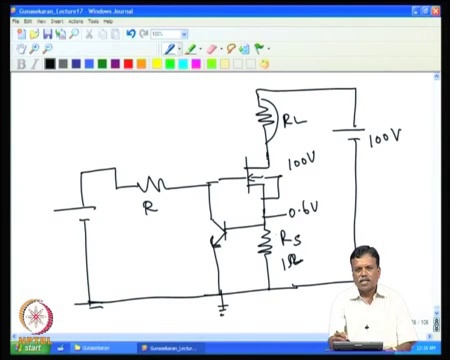 Gunasekaran_Lecture17 - Windows Journal
File Edit View Insert Actions Tools Help
100%
B I
RL
100V
100V
R
0.6V
RS
1Ω
start
Gunasekaran
Gunasekaran_Lectur...